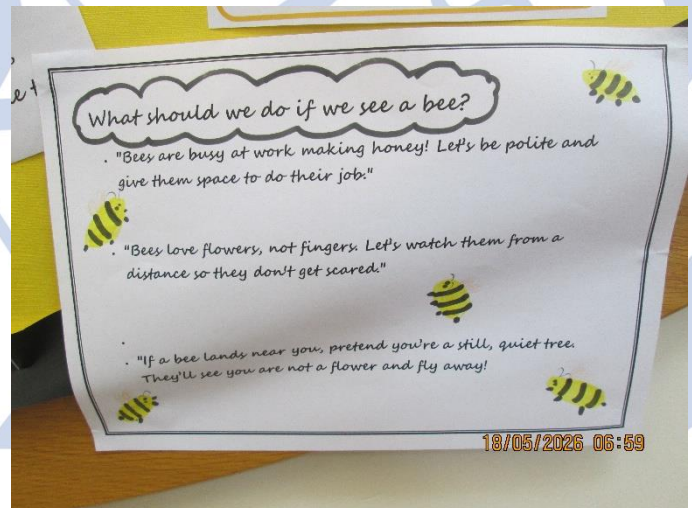 What should we do if we see a bee?
. "Bees are busy at work making honey! Let's be polite and
give them space to do their job."
. "Bees love flowers, not fingers. Let's watch them from a
distance so they don't get scared."
.
. "If a bee lands near you, pretend you're a still, quiet tree.
They'll see you are not a flower and fly away!
18/05/2026 06:59